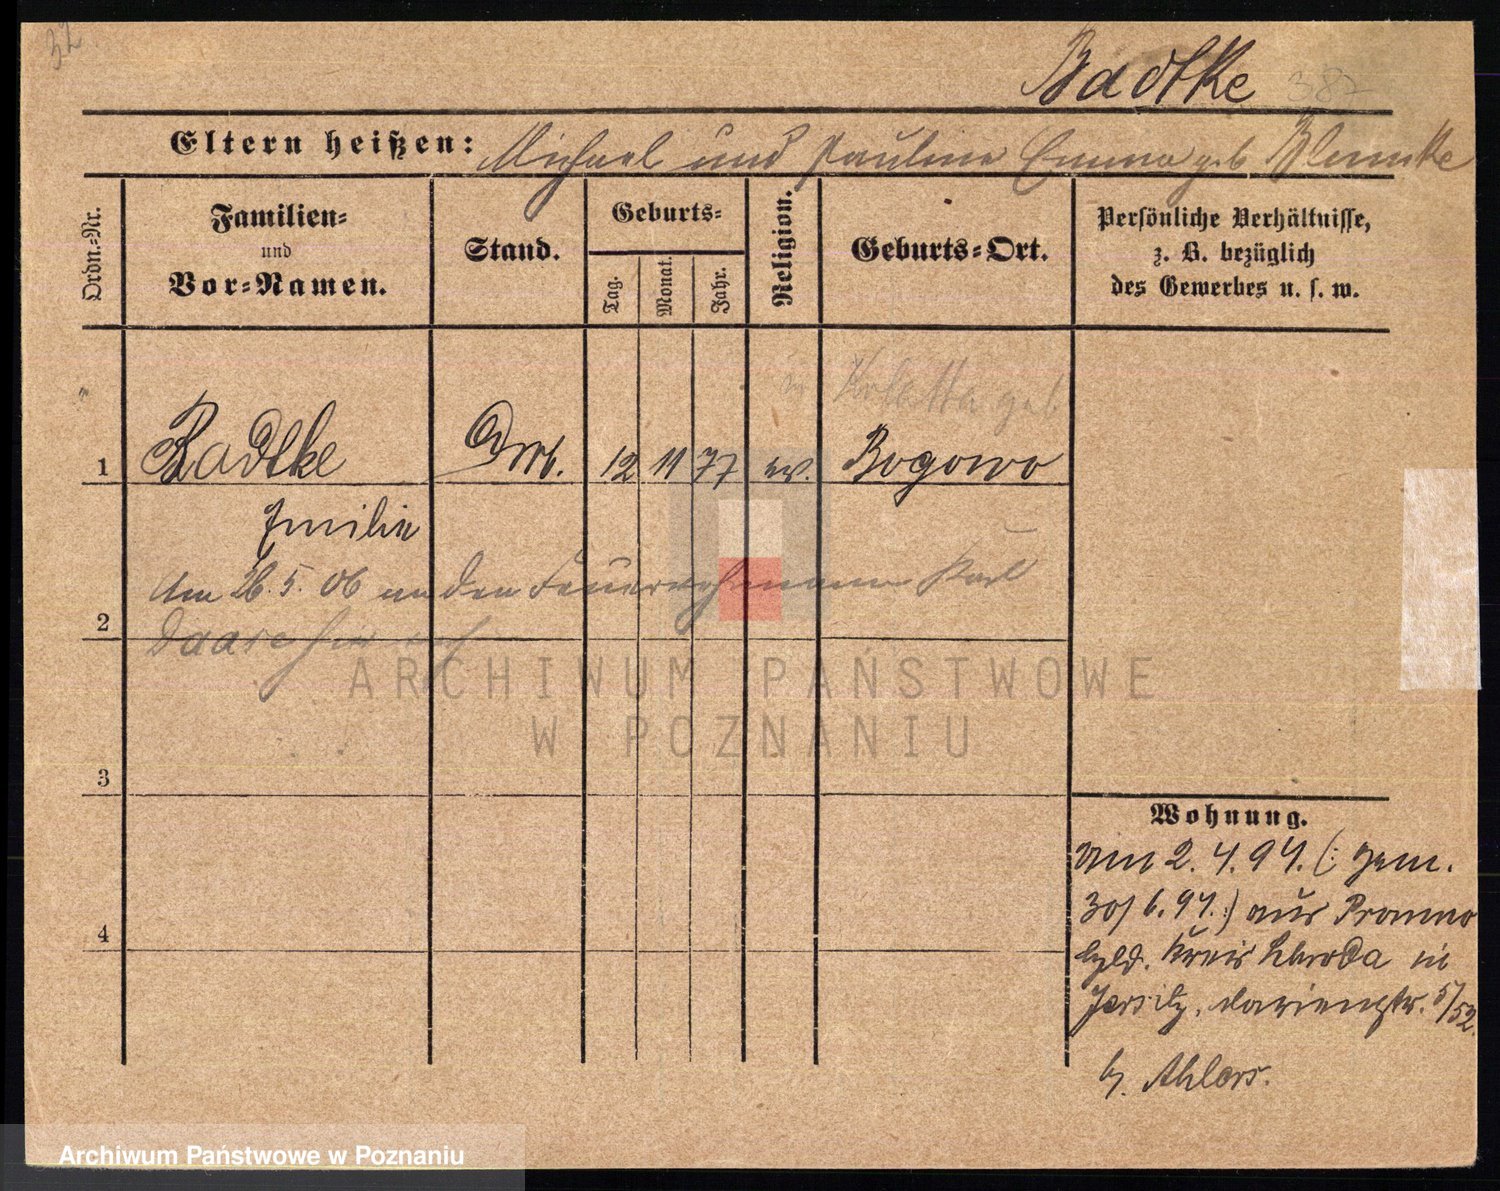 32
Badtke 387
Eltern heißen: Michael und Pauline Emma geb
Ordn.-Nr.
Familien-
und
Vor-Namen.
Stand.
Geburts-
Tag.
Monat.
Jahr.
Religion.
Geburts-Ort.
Persönliche Verhältnisse,
z. B. bezüglich
des Gewerbes u. s. w.
geb
1 Radtke 12 11 77 ev. Bogowo
Emilie
Am 26. 5. 06 an den Feuerwehrmann Karl
2
3
4
Wohnung.
am 2. 4. 94. (: gem.
30/6. 94. :) aus Promno
Hzld. Kreis Schroda in
Jersitz, Marienstr. 5/52.
b. Ahlers.
ARCHIWUM PAŃSTWOWE
W POZNANIU
Archiwum Państwowe w Poznaniu